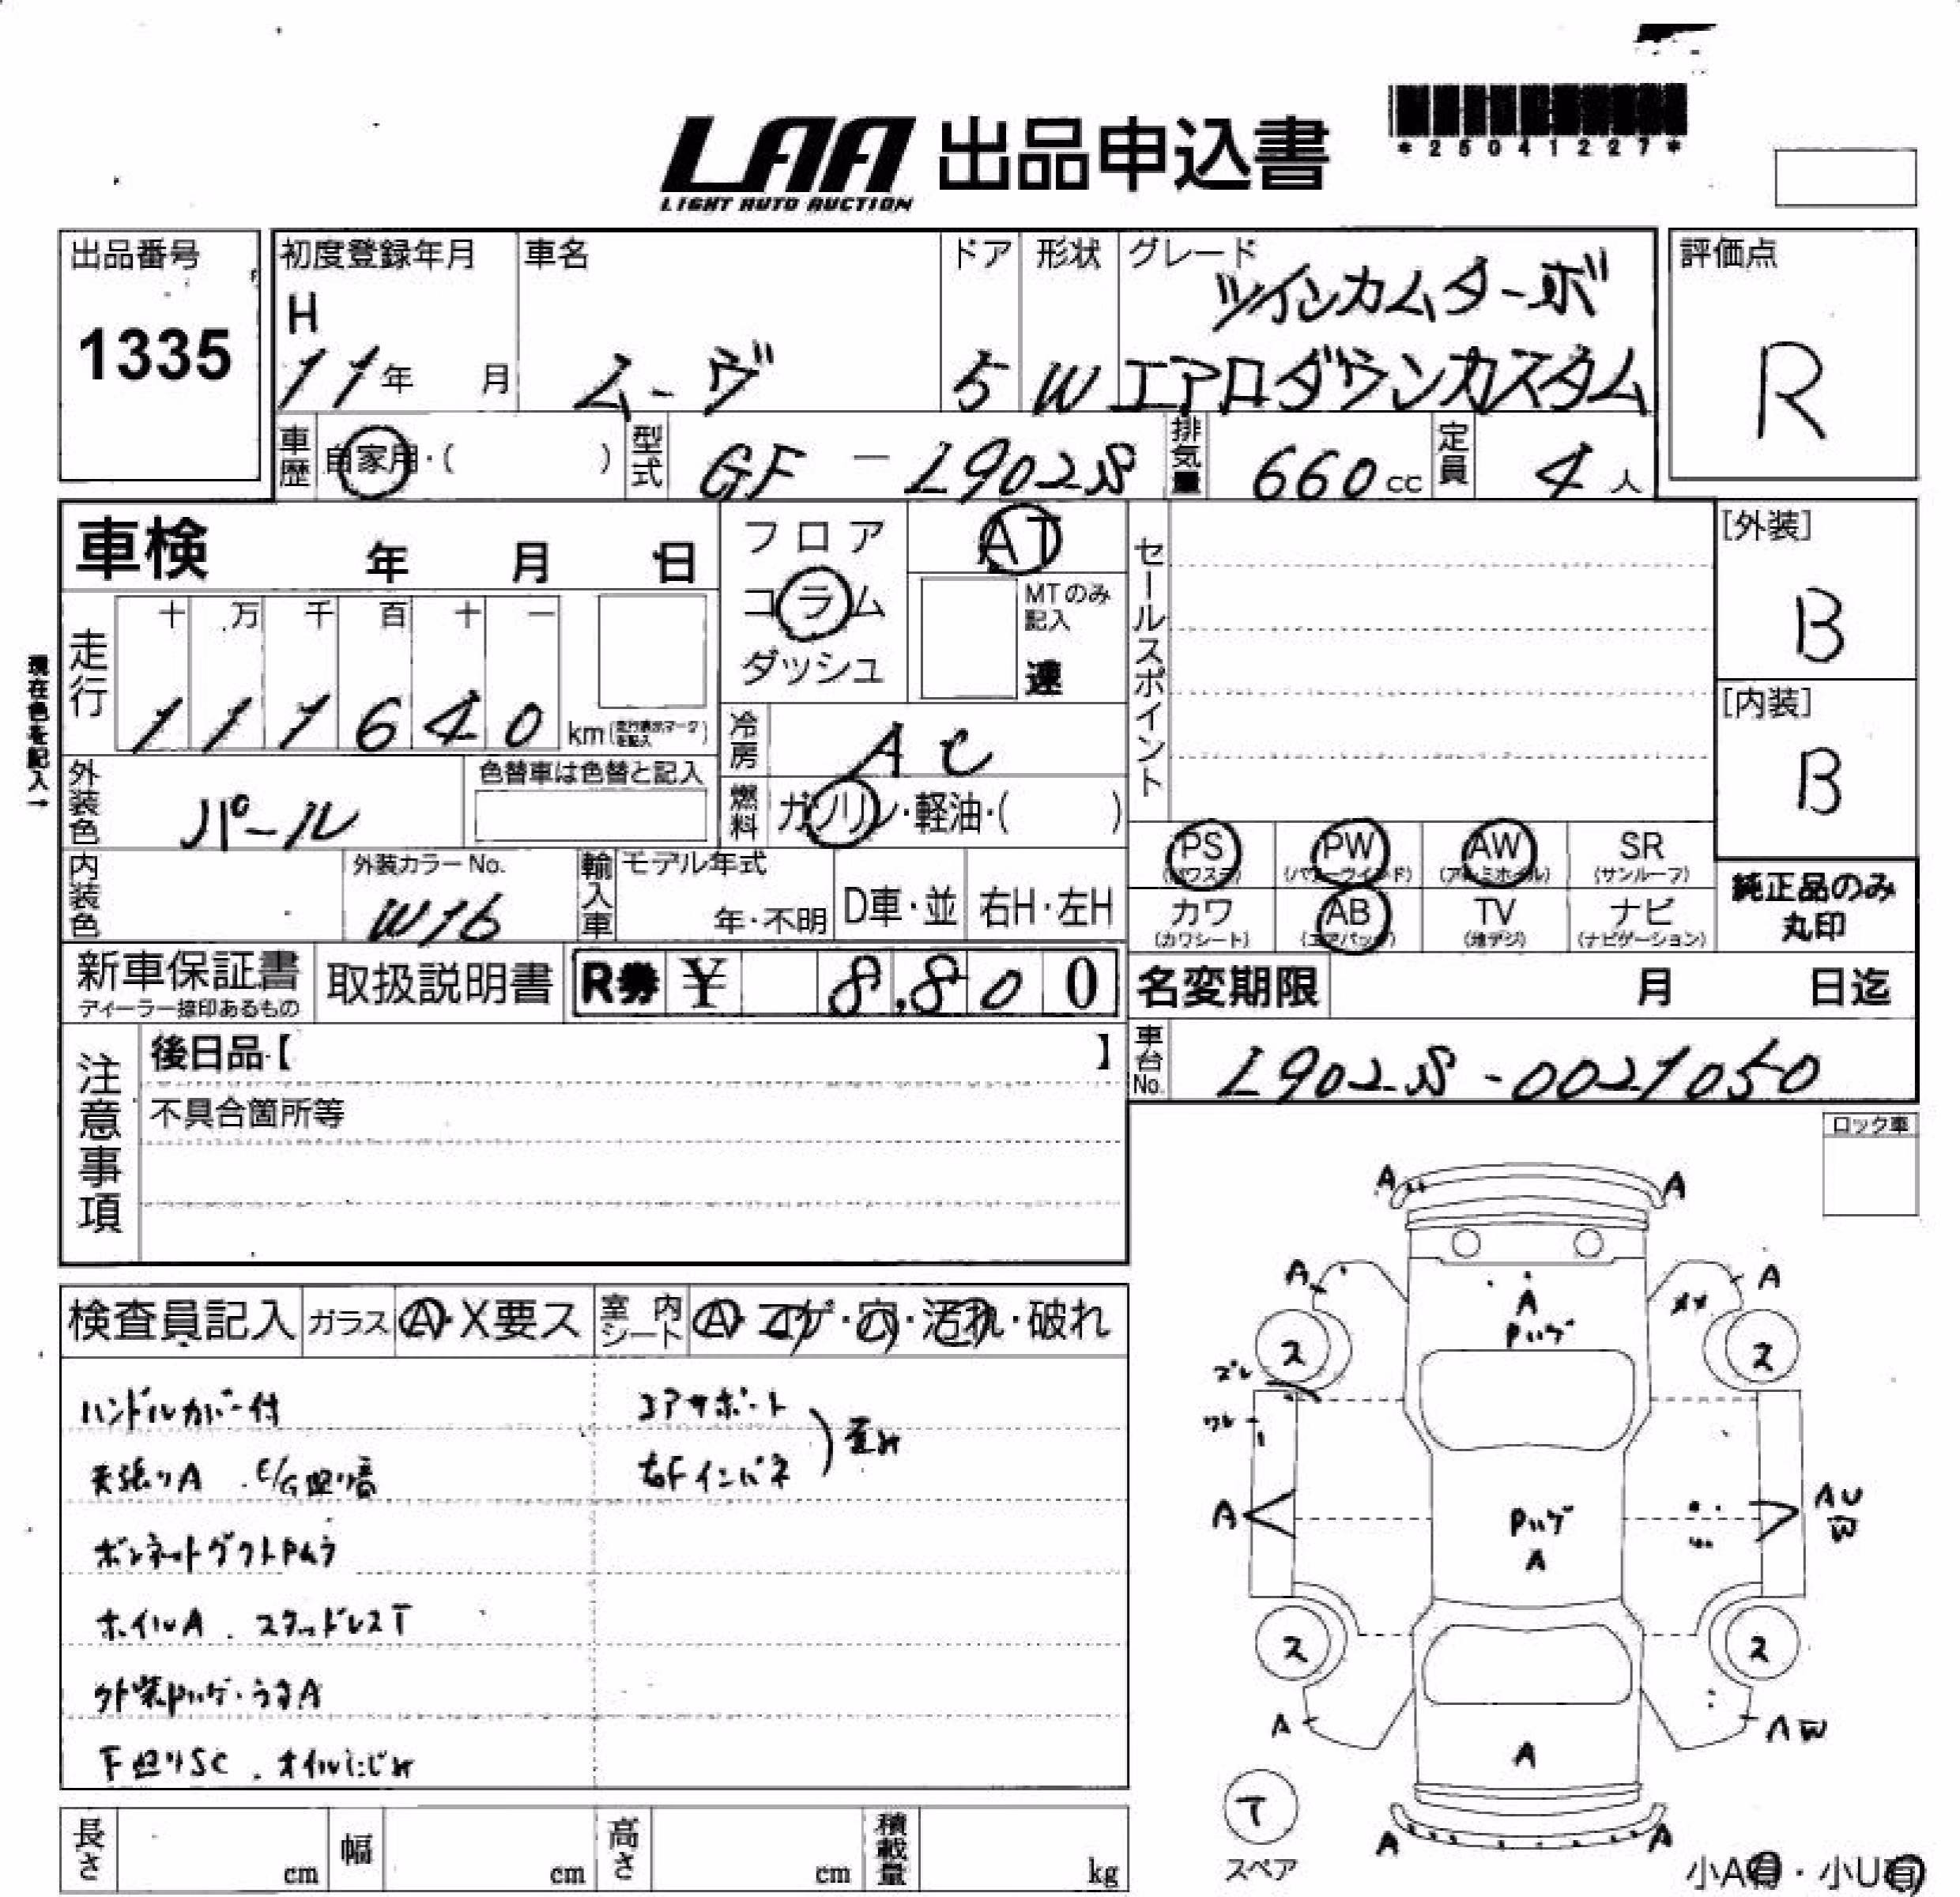 LAA 出品申込書
LIGHT AUTO AUCTION
*25041227*
出品番号
1335
初度登録年月
H
11年 月
車名
ムーヴ
ドア
5
形状
W
グレード
ツインカムターボ
エアロダウンカスタム
評価点
R
車歴
自家用・( )
型式
GF - L902S
排気量
660cc
定員
4人
車検 年 月 日
フロア
コラム
ダッシュ
AT
MTのみ
記入
速
セールスポイント
[外装]
B
[内装]
B
現在色を記入→
走行
十 万 千 百 十 一
1 1 1 6 4 0 km
(走行表示マークを記入)
冷房
AC
燃料
ガソリン・軽油・( )
外装色
パール
色替車は色替と記入
内装色
外装カラーNo.
W16
輸入車
モデル年式
年・不明
D車・並
右H・左H
PS
(パワステ)
PW
(パワーウインド)
AW
(アルミホイル)
SR
(サンルーフ)
カワ
(カワシート)
AB
(エアバッグ)
TV
(地デジ)
ナビ
(ナビゲーション)
純正品のみ
丸印
新車保証書
ディーラー捺印あるもの
取扱説明書
R券 ¥ 8,800
名変期限 月 日迄
車台No.
L902S-0021050
注意事項
後日品【 】
不具合箇所等
ロック車
検査員記入
ガラス
A・X要ス
室内シート
A・コゲ・穴・汚れ・破れ
ハンドルカバー付
エアサポート
天張りA . E/G廻り音
右Fインパネ
歪み
ボンネットダクトPムラ
ホイルA . スタッドレスT
外装Pハゲ・うすA
下廻りSC . オイルにじみ
A A
A A
A
Pハゲ
ス ス
ズレ
ワレ
A
Pハゲ
A
AU
W
ス ス
A
A
AW
T
スペア
A A
小A有・小U有
長さ cm
幅 cm
高さ cm
積載量 kg